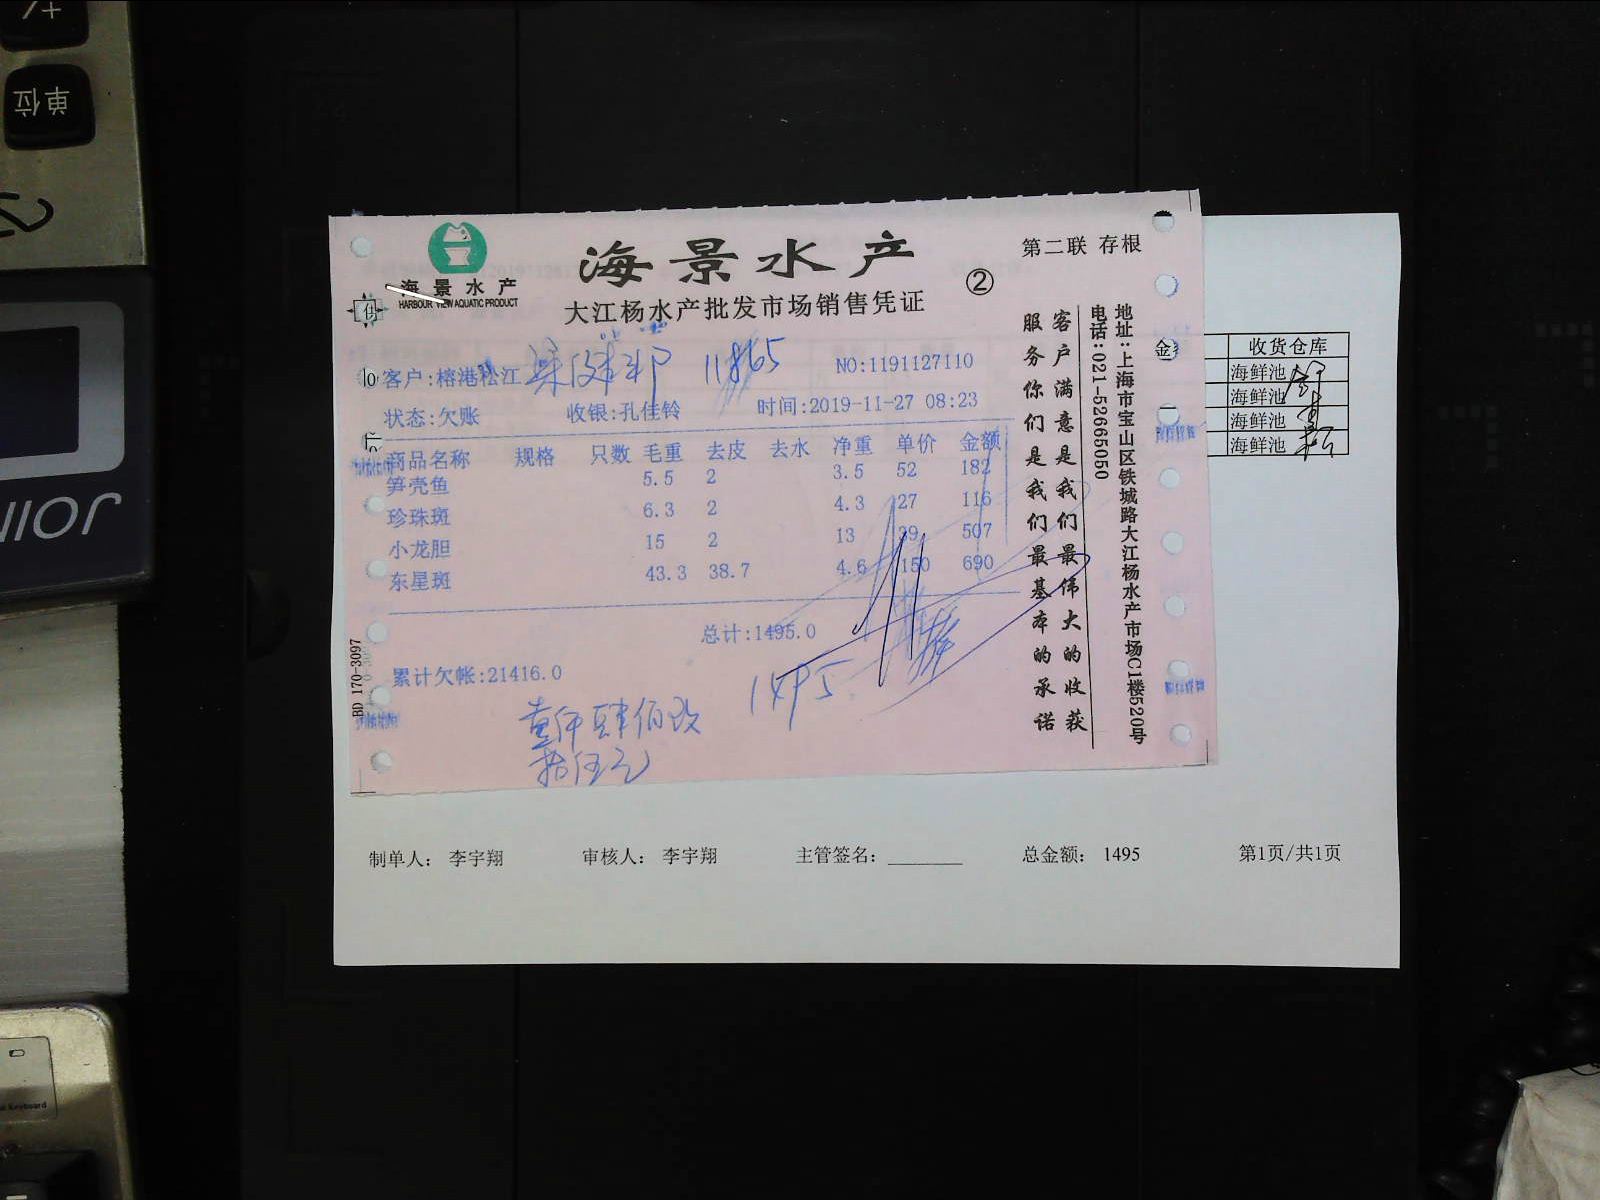 单位
海景水产
HARBOUR VIEW AQUATIC PRODUCT
海景水产
大江杨水产批发市场销售凭证
②
第二联 存根
客户:榕港松江
11865
NO:1191127110
状态:欠账 收银:孔佳铃 时间:2019-11-27 08:23
商品名称 规格 只数 毛重 去皮 去水 净重 单价 金额
笋壳鱼 5.5 2 3.5 52 182
珍珠斑 6.3 2 4.3 27 116
小龙胆 15 2 13 39 507
东星斑 43.3 38.7 4.6 150 690
总计:1495.0
累计欠帐:21416.0
1495.
壹仟肆佰玖
拾伍元
BD 170-3097
客户满意是我们最伟大的收获
服务你们是我们最基本的承诺
地址:上海市宝山区铁城路大江杨水产市场C1楼520号
电话:021-52665050
收货仓库
海鲜池
海鲜池
海鲜池
海鲜池
制单人: 李宇翔 审核人: 李宇翔 主管签名: 总金额: 1495 第1页/共1页